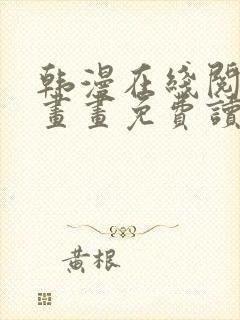 韩漫在綫閱
畫畫免費讀
黃根